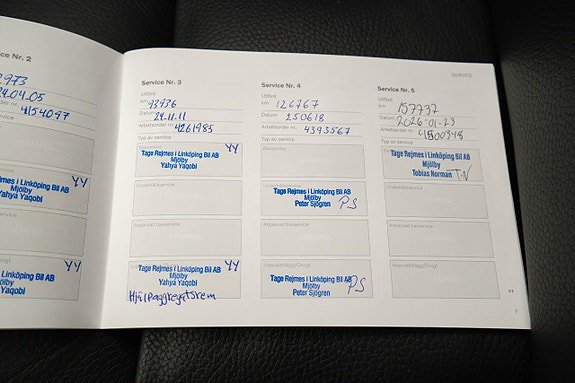 SERVICE
Service Nr. 2
24.04.05
4154047
YY
Linköping Bil AB
Mjölby
Yahya Yaqobi
YY
Linköping Bil AB
Mjölby
Yahya Yaqobi
Service Nr. 3
Utförd
km 93936
Datum 24.11.11
Arbetsorder nr. 4261985
Typ av service
Basservice
Tage Rejmes i Linköping Bil AB
Mjölby
Yahya Yaqobi
YY
Underhållsservice
Anpassad basservice
Tage Rejmes i Linköping Bil AB
Mjölby
Yahya Yaqobi
YY
Hjälpaggregatsrem
Service Nr. 4
Utförd
km 126767
Datum 250618
Arbetsorder nr. 4393567
Typ av service
Basservice
Tage Rejmes i Linköping Bil AB
Mjölby
Peter Sjögren
PS
Anpassad basservice
Intervalltillägg/Övrigt
Tage Rejmes i Linköping Bil AB
Mjölby
Peter Sjögren
PS
Service Nr. 5
Utförd
km 157737
Datum 2026-01-23
Arbetsorder nr.
Typ av service
Tage Rejmes i Linköping Bil AB
Mjölby
Tobias Norman
TN
Underhållsservice
Anpassad basservice
Intervalltillägg/Övrigt
7